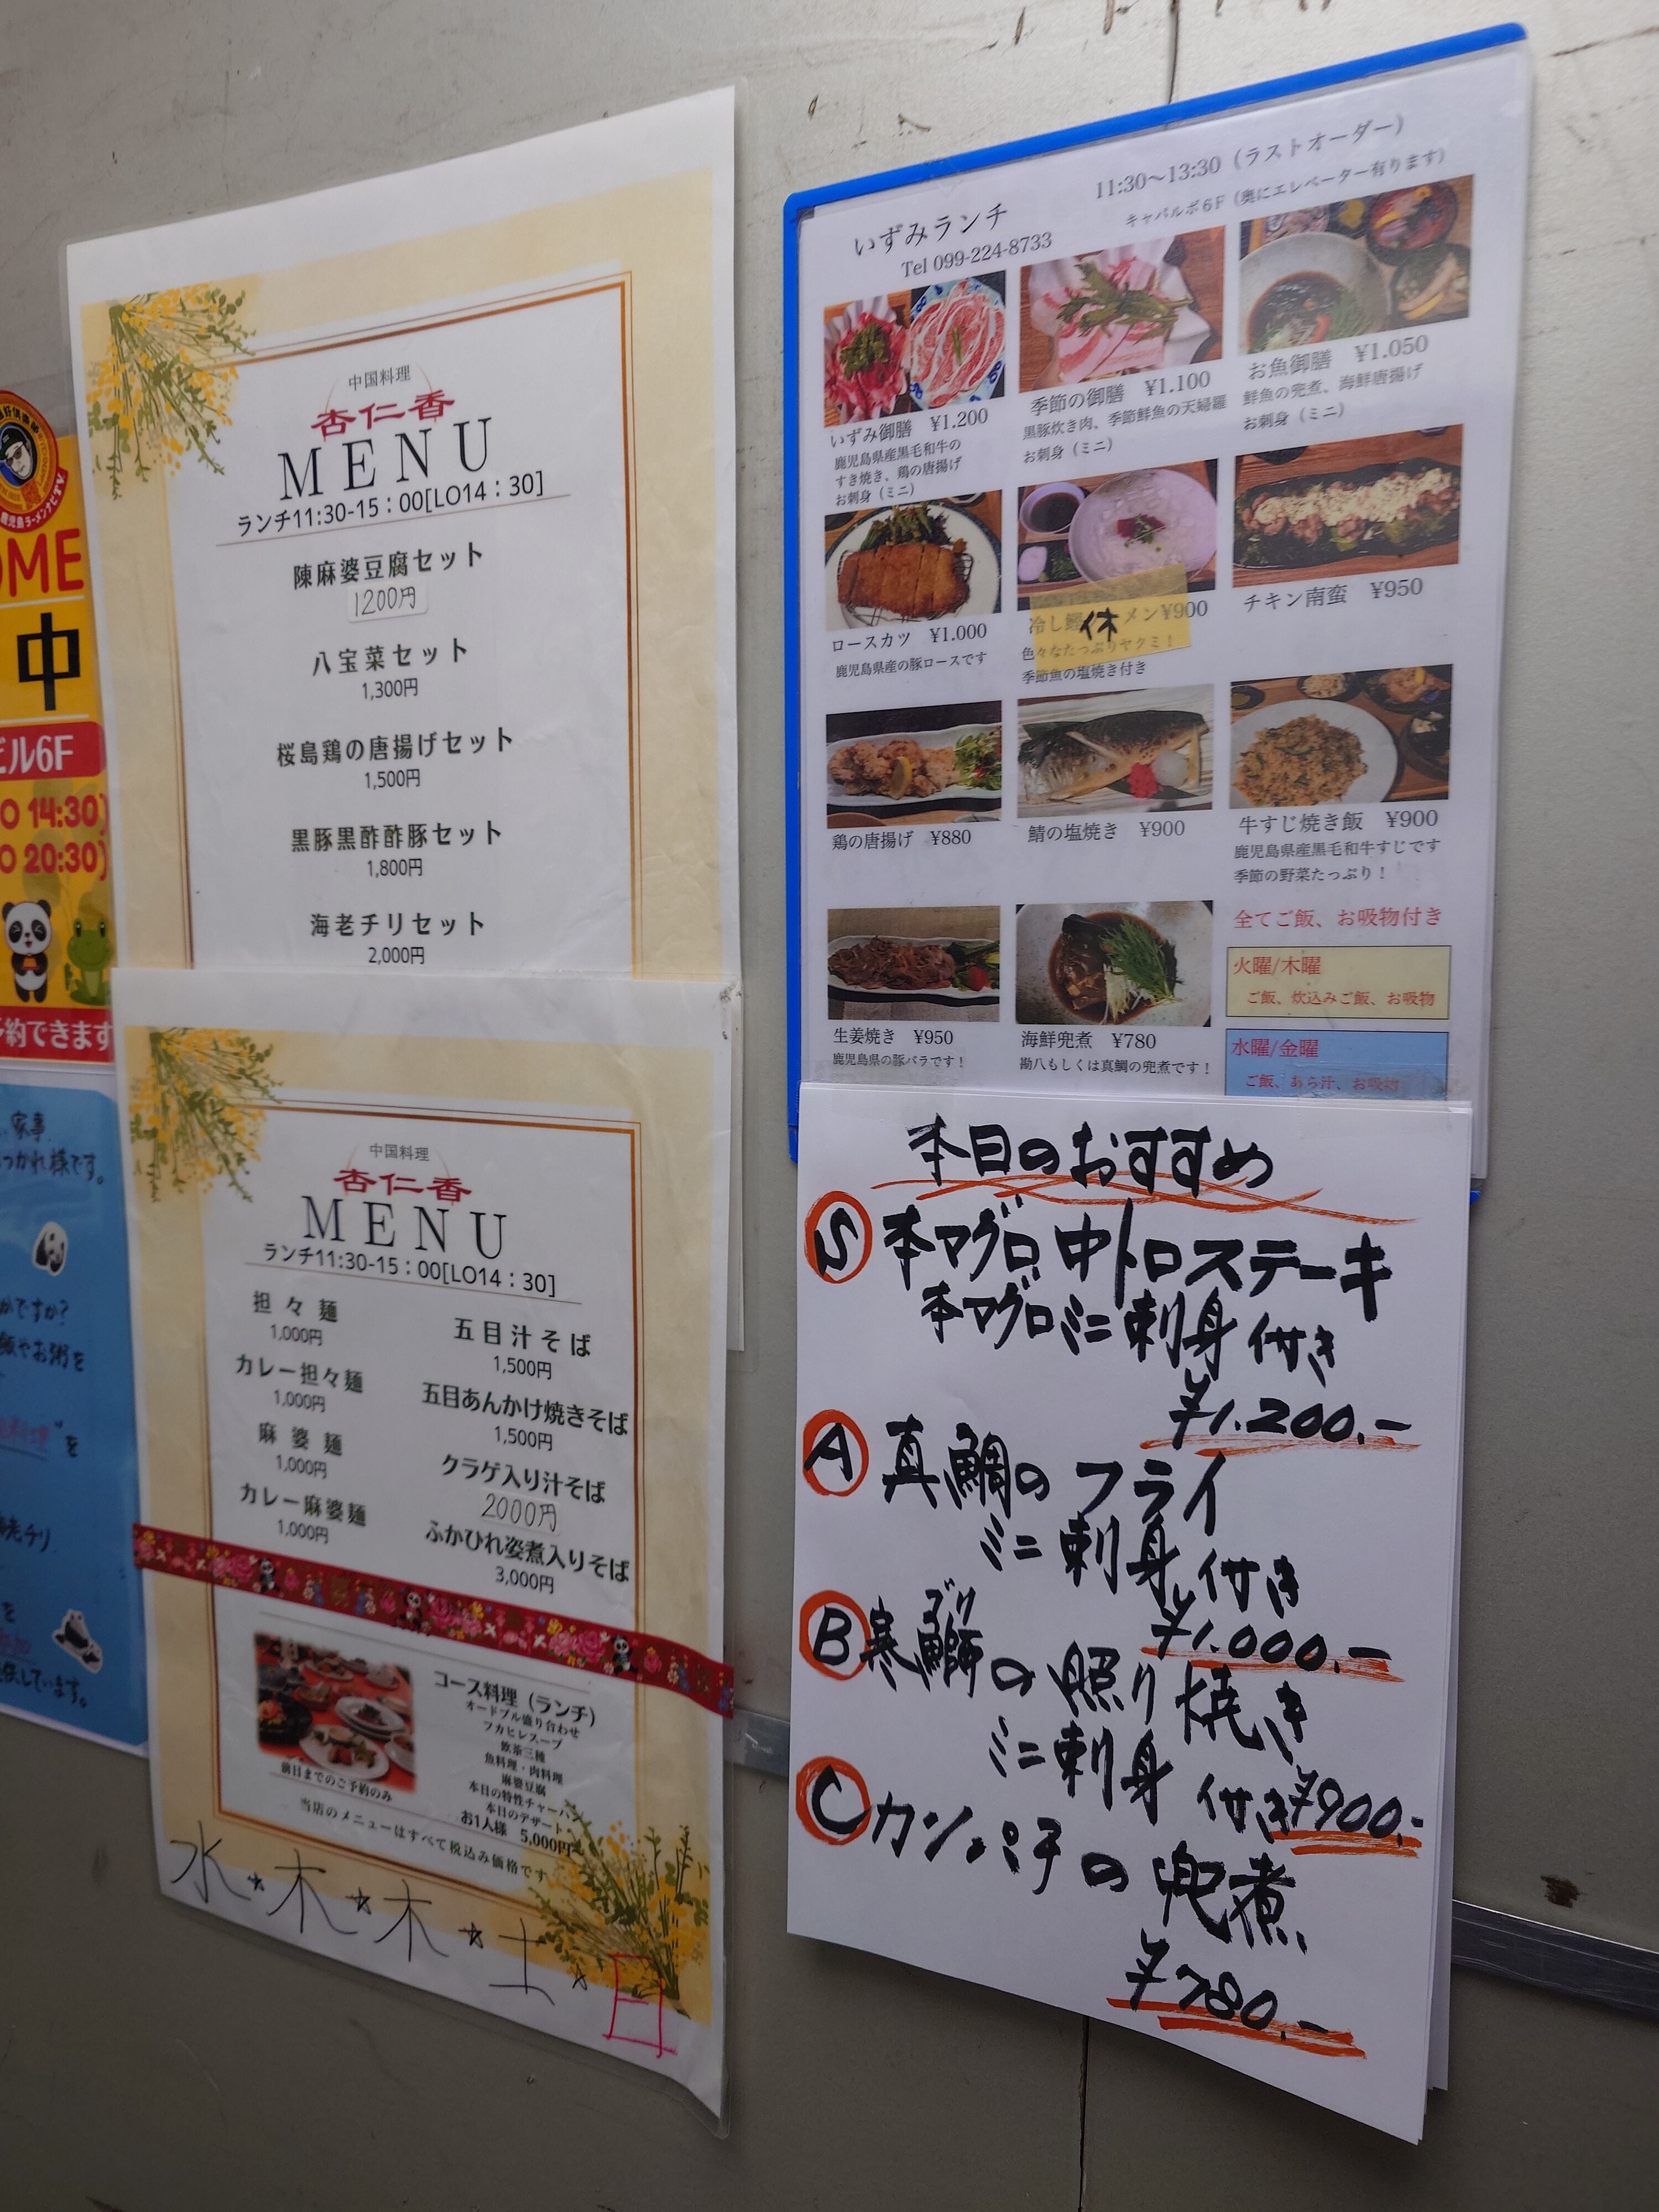 中国料理
杏仁香
MENU
ランチ11:30-15：00[LO14：30]
陳麻婆豆腐セット
1200円
八宝菜セット
1,300円
桜島鶏の唐揚げセット
1,500円
黒豚黒酢酢豚セット
1,800円
海老チリセット
2,000円
中国料理
杏仁香
MENU
ランチ11:30-15：00[LO14：30]
担々麺
1,000円
カレー担々麺
1,000円
麻婆麺
1,000円
カレー麻婆麺
1,000円
五目汁そば
1,500円
五目あんかけ焼きそば
1,500円
クラゲ入り汁そば
2000円
ふかひれ姿煮入りそば
3,000円
コース料理（ランチ）
オードブル盛り合わせ
フカヒレスープ
飲茶三種
魚料理・肉料理
麻婆豆腐
本日の特性チャーハン
本日のデザート
お1人様 5,000円
前日までのご予約のみ
当店のメニューはすべて税込み価格です
水★木★木★土★日
いずみランチ
11:30〜13:30（ラストオーダー）
Tel 099-224-8733
キャパルボ6F（奥にエレベーター有ります）
いずみ御膳 ¥1.200
鹿児島県産黒毛和牛の
すき焼き、鶏の唐揚げ
お刺身（ミニ）
季節の御膳 ¥1.100
黒豚炊き肉、季節鮮魚の天婦羅
お刺身（ミニ）
お魚御膳 ¥1.050
鮮魚の兜煮、海鮮唐揚げ
お刺身（ミニ）
ロースカツ ¥1.000
鹿児島県産の豚ロースです
冷し鰹 メン¥900
休
色々なたっぷりヤクミ！
季節魚の塩焼き付き
チキン南蛮 ¥950
鶏の唐揚げ ¥880
鯖の塩焼き ¥900
牛すじ焼き飯 ¥900
鹿児島県産黒毛和牛すじです
季節の野菜たっぷり！
生姜焼き ¥950
鹿児島県の豚バラです！
海鮮兜煮 ¥780
勘八もしくは真鯛の兜煮です！
全てご飯、お吸物付き
火曜/木曜
ご飯、炊込みご飯、お吸物
水曜/金曜
ご飯、あら汁、お吸物
本日のおすすめ
Ⓢ本マグロ中トロステーキ
本マグロミニ刺身付き
¥1.200.-
Ⓐ真鯛のフライ
ミニ刺身付き
¥1.000.-
ブリ
Ⓑ寒鰤の照り焼き
ミニ刺身付き¥900.-
Ⓒカンパチの兜煮
¥780.-
鹿児島ラーメンナビTV
OME
中
ビル6F
O 14:30]
O 20:30]
予約できます
家事
つかれ様です。
かですか？
飯やお粥を
を
老チリ
を
供しています。